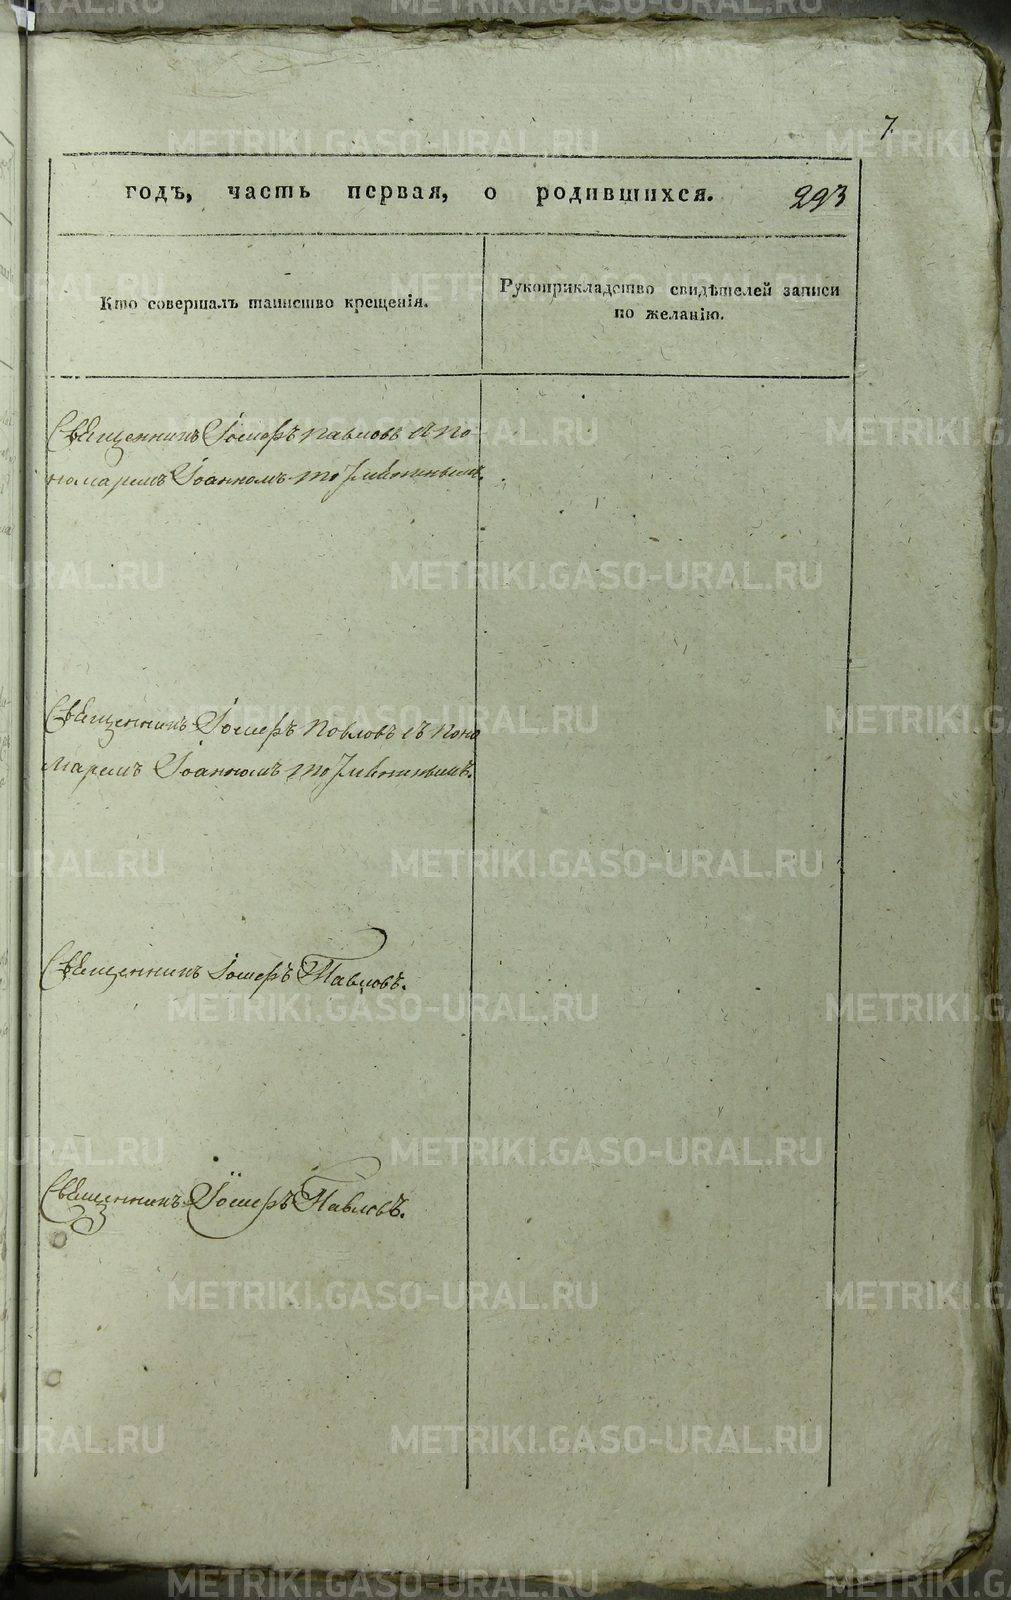 7.
годъ, часть первая, о родившихся. 293
Кто совершалъ таинство крещенія.
Рукоприкладство свидѣтелей записи
по желанію.
Священникъ Іосифъ Павловъ съ по-
номаремъ Іоанномъ
Священникъ Іосифъ Павловъ съ поно
маремъ Іоанномъ
Священникъ Іосифъ Павловъ.
Священникъ Іосифъ Павловъ.
METRIKI.GASO-URAL.RU